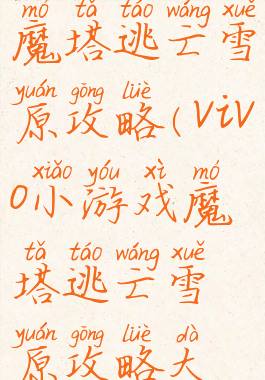 mó tǎ táo wáng xuě
魔塔逃亡雪
yuán gōng lüè
原攻略(ViV
xiǎo yóu xì mó
O小游戏魔
tǎ táo wáng xuě
塔逃亡雪
yuán gōng lüè dà
原攻略大